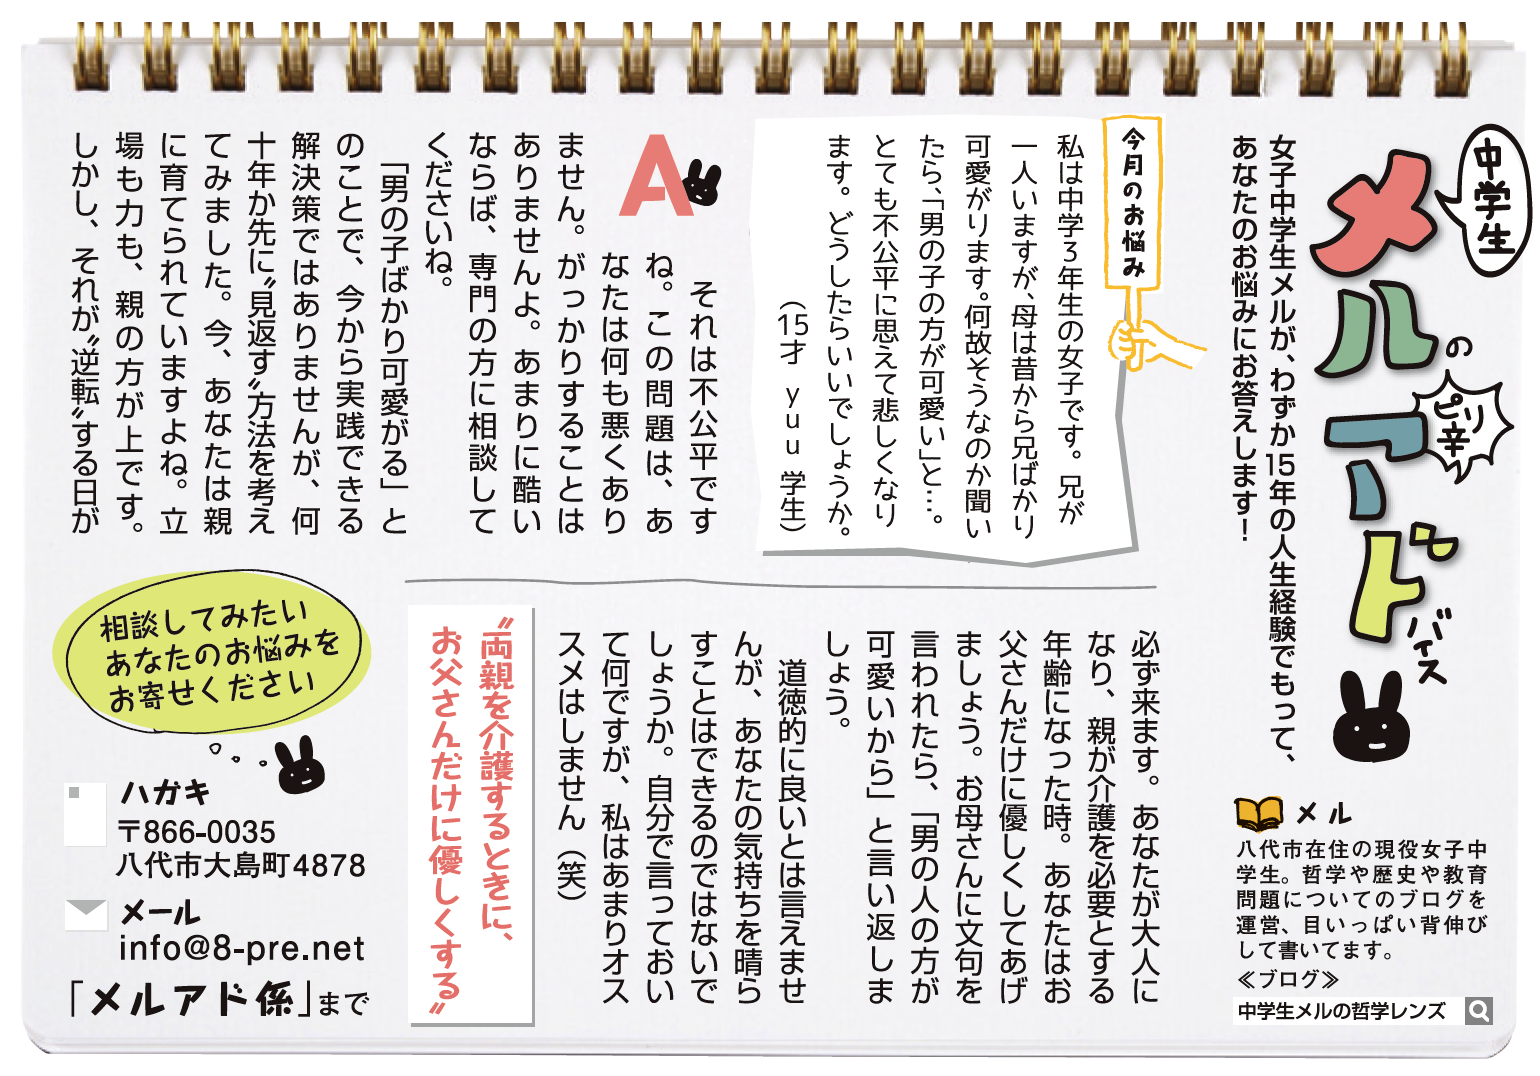 中学生
メルの
ピリ辛
アドバイス
女子中学生メルが、わずか15年の人生経験でもって、
あなたのお悩みにお答えします！
今月のお悩み
私は中学３年生の女子です。兄が
一人いますが、母は昔から兄ばかり
可愛がります。何故そうなのか聞い
たら、「男の子の方が可愛い」と…。
とても不公平に思えて悲しくなり
ます。どうしたらいいでしょうか。
（15才 yuu 学生）
A
それは不公平です
ね。この問題は、あ
なたは何も悪くあり
ません。がっかりすることは
ありませんよ。あまりに酷い
ならば、専門の方に相談して
くださいね。
「男の子ばかり可愛がる」と
のことで、今から実践できる
解決策ではありませんが、何
十年か先に〝見返す〟方法を考え
てみました。今、あなたは親
に育てられていますよね。立
場も力も、親の方が上です。
しかし、それが〝逆転〟する日が
必ず来ます。あなたが大人に
なり、親が介護を必要とする
年齢になった時。あなたはお
父さんだけに優しくしてあげ
ましょう。お母さんに文句を
言われたら、「男の人の方が
可愛いから」と言い返しま
しょう。
道徳的に良いとは言えませ
んが、あなたの気持ちを晴ら
すことはできるのではないで
しょうか。自分で言っておい
て何ですが、私はあまりオス
スメはしません（笑）
〝両親を介護するときに、
お父さんだけに優しくする〟
メル
八代市在住の現役女子中
学生。哲学や歴史や教育
問題についてのブログを
運営、目いっぱい背伸び
して書いてます。
≪ブログ≫
中学生メルの哲学レンズ
相談してみたい
あなたのお悩みを
お寄せください
ハガキ
〒866-0035
八代市大島町4878
メール
info@8-pre.net
「メルアド係」まで